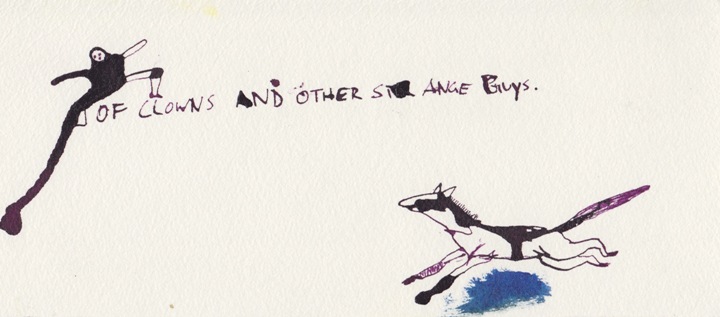 OF CLOWNS AND OTHER STRANGE GUYS.